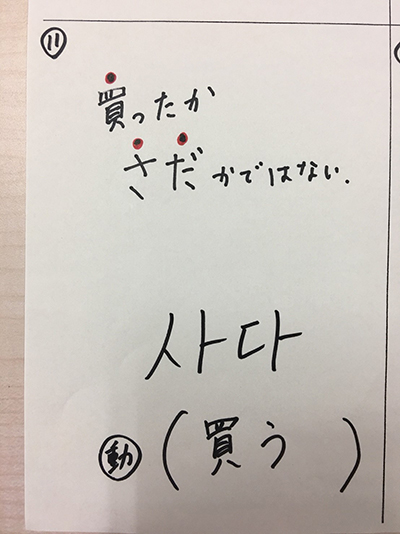 ⑪
買ったか
さだかではない.
사다
動 (買う)